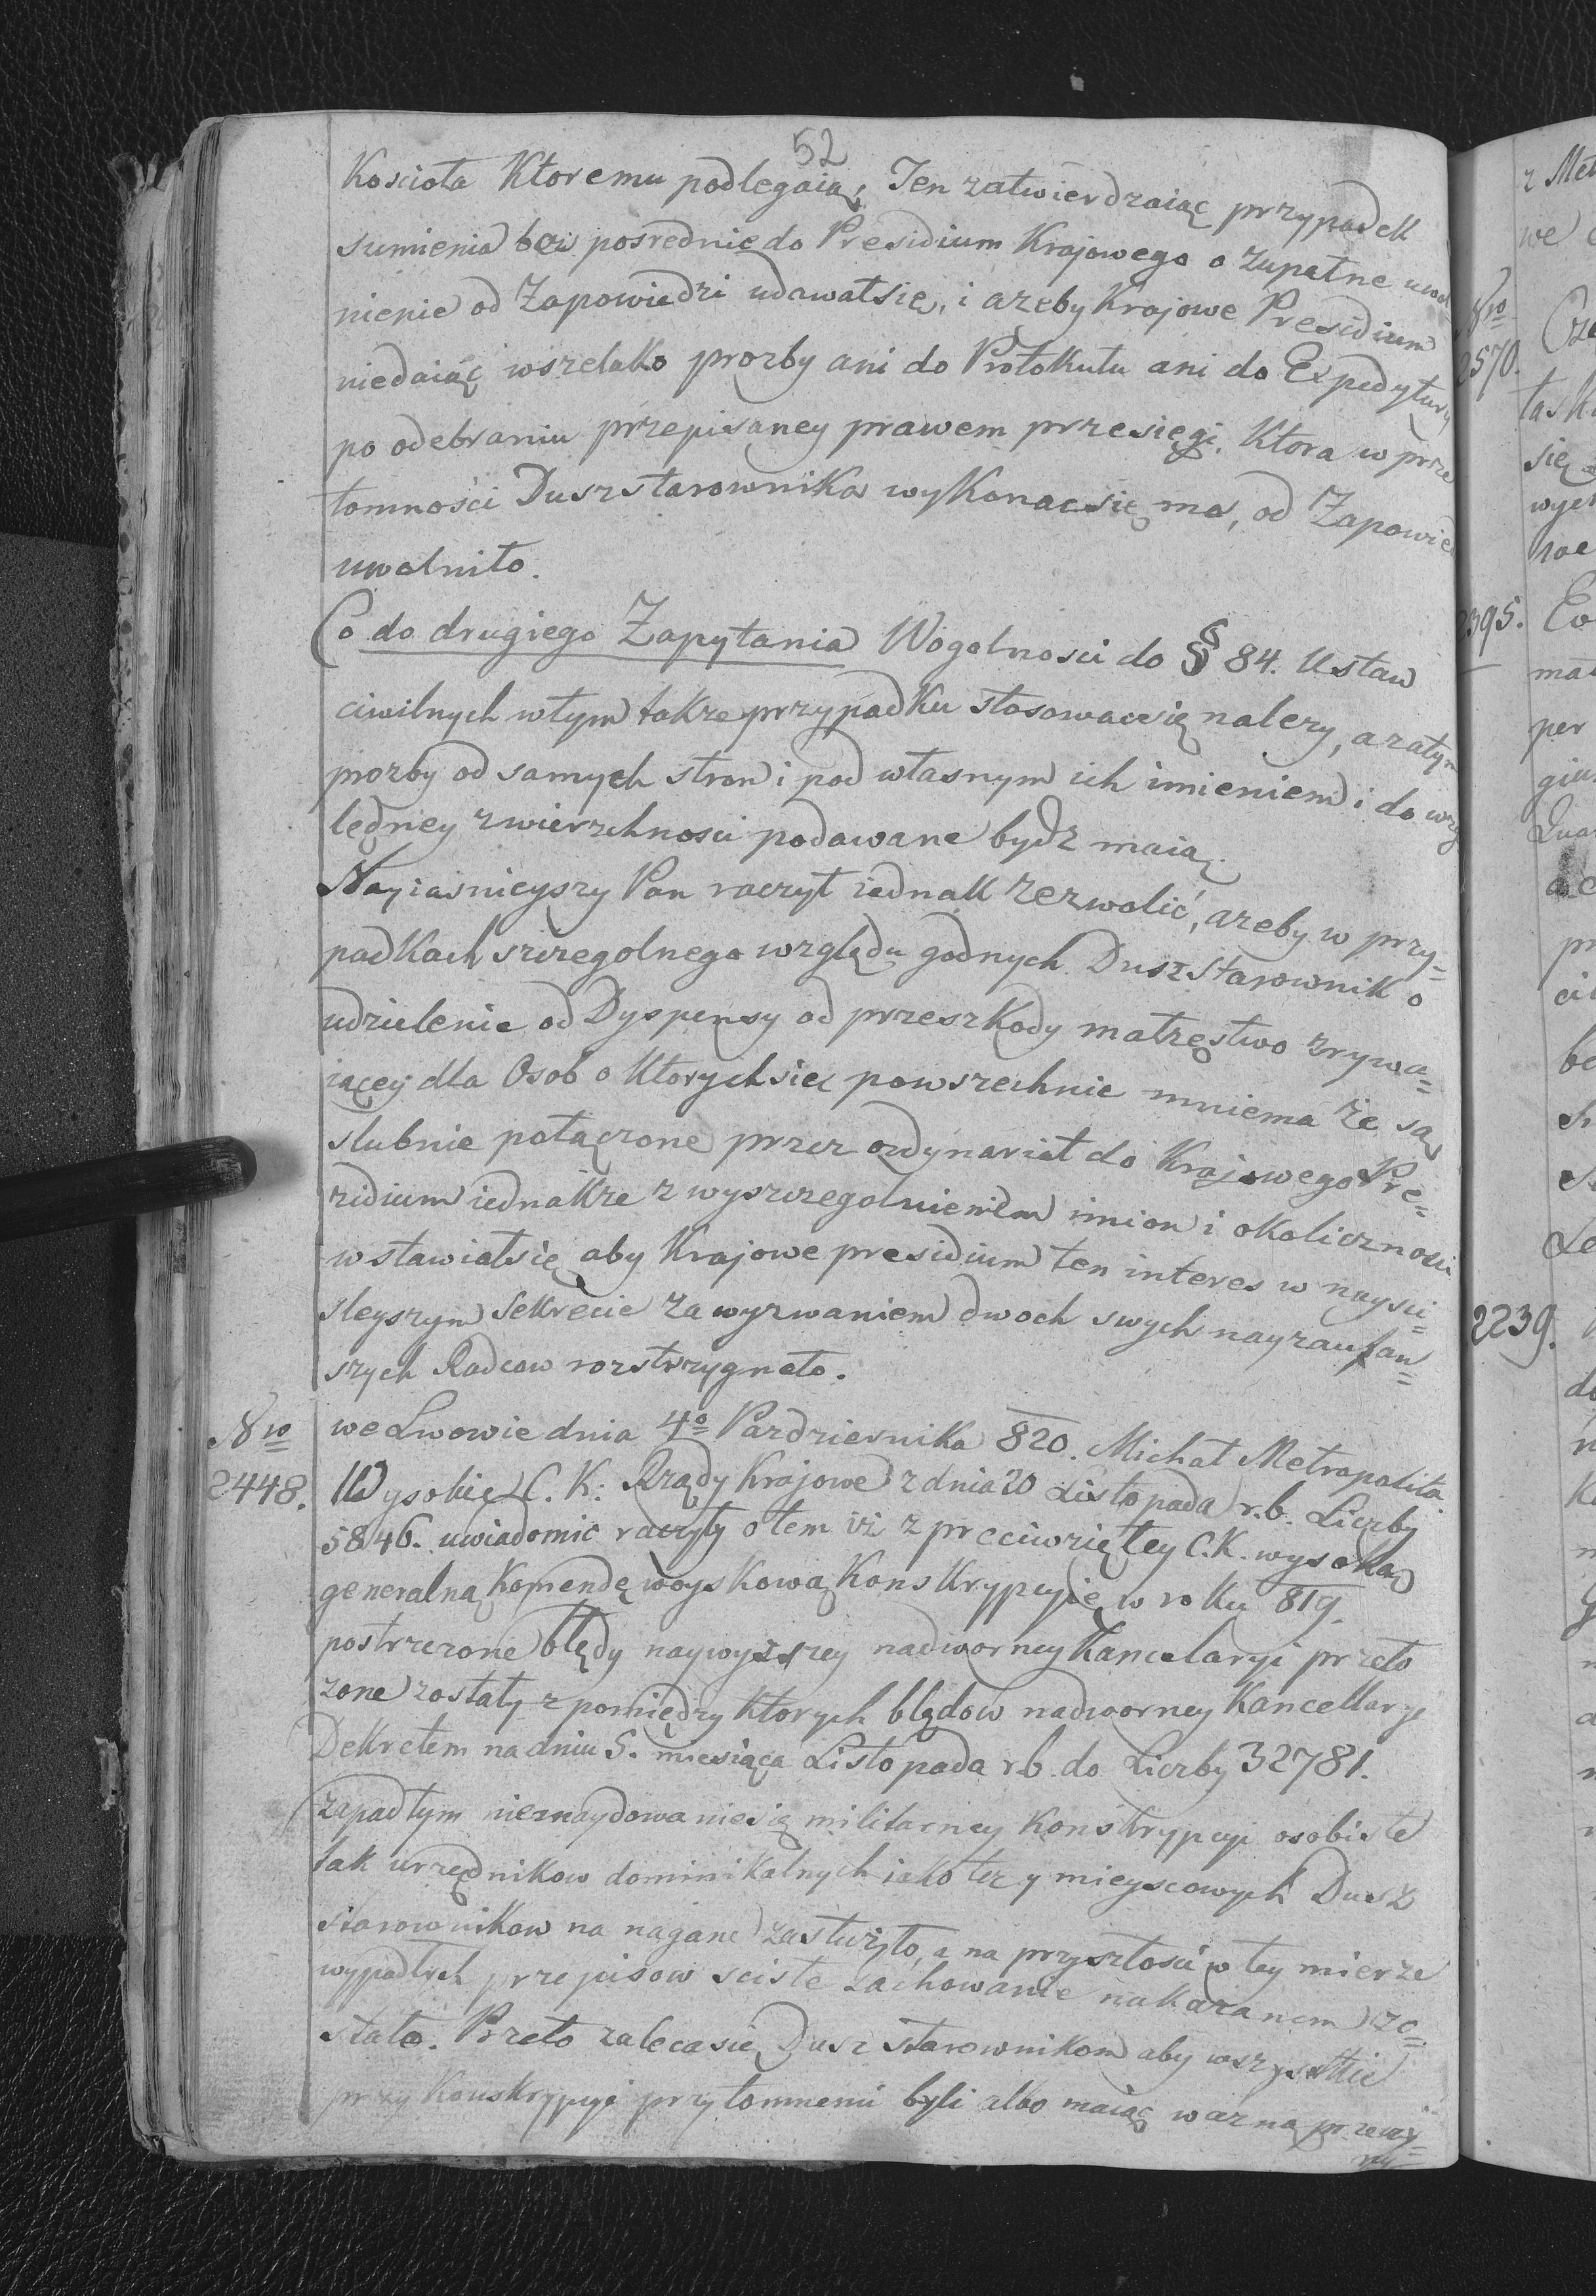 52
Koscioła Ktoremu podlegaią; Ten zatwierdzaiąc przypadek
sumienia bez posrednie do Presidium Krajowego o zupełne uwol
nienie od Zapowiedzi udawałsię, i azeby Krajowe Presidium
niedaiąc wszelako prozby ani do Protokułu ani do Expedytury
po odebraniu przepisaney prawem przesięgi, Ktora w przy
tomności Duszstarownika wykonacsię ma, od Zapowied
uwolniło.
Co do drugiego Zapytania Wogolnosci do § 84. Ustaw
ciwilnych wtym takze przypadku stosowacsię nalezy, a zatym
prozby od samych stron i pod własnym ich imieniem i do wzg
lędney zwierzchnosci podawane bydz maią.
Nayiasnieyszy Pan raczył iednak zezwolić, azeby w przy=
padkach szczegolnego względu godnych Duszstarownik o
udzielenie od Dyspensy od przeszkody małzęstwo zrywa=
iącey dla Osob o Ktorychsię powszechnie mniema że są
slubnie połączone przez ordynariat do Krajowego Pre=
zidium iednakze z wyszczegolnieniem imion i okolicznosci
wstawiałsię aby Krajowe presidium ten interes w naysci=
sleyszym Sekrecie za wyzwaniem dwoch swych nayzaufan=
szych Radcow rozstrzygneło.
we Lwowie dnia 4º Pazdziernika 820. Michał Metropolita
Nro
2448.
Wysokie C. K: Rządy Krajowe z dnia 20 Listopada r.b. Liczby
5846. uwiadomic raczyły o tem iż z przeciwziętey C.K. wysoką
generalną Komendę woyskową Konskrypcyię w roku 819.
postrzezone błędy naywyzszey nadworney Kancelaryi przeło
zone zostały z pomiędzy Ktorych błędow nadworney Kancellaryi
Dekretem na dniu 5. miesiąca Listopada r.b. do Liczby 32781.
zapadłym nieznaydowaniesię militarney Konskrypcyi osobiste
tak urzędnikow dominikalnych iako tez y mieyscowych Dusz
starownikow na naganę zasłużyło, a na przyszłosci w tey mierze
wypadłych przepisow scisłe zachowanie nakazanem zo=
stało. Przeto zalecasię Dusz starownikom aby wszystkie
przy Konskrypcyi przytomnemi byli albo maiąc wazną przeczy=
ny=
r Met
we
Nro
2570.
2395.
per
2239.